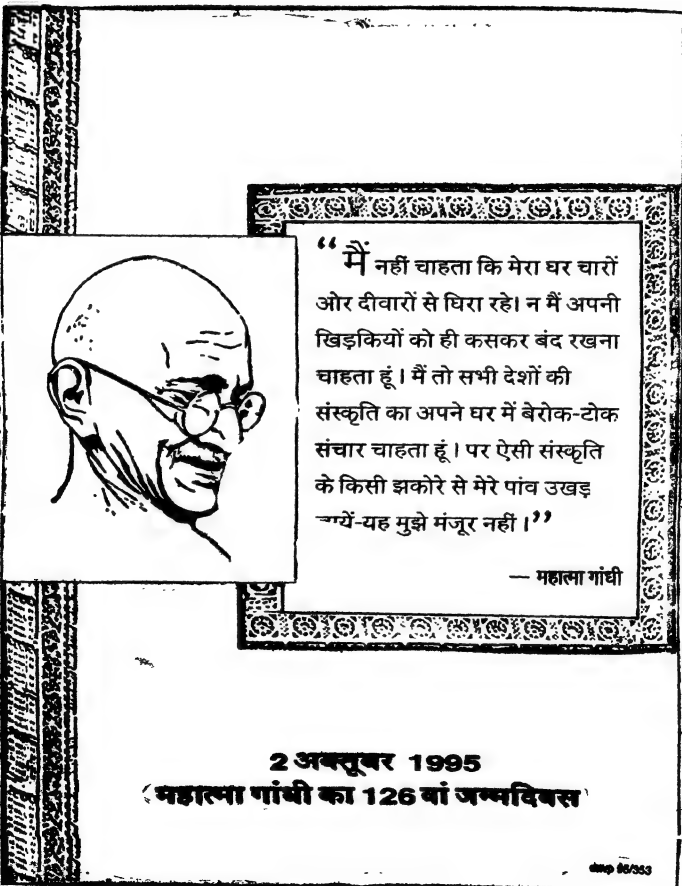 “मैं नहीं चाहता कि मेरा घर चारों
ओर दीवारों से घिरा रहे। न मैं अपनी
खिड़कियों को ही कसकर बंद रखना
चाहता हूं। मैं तो सभी देशों की
संस्कृति का अपने घर में बेरोक-टोक
संचार चाहता हूं। पर ऐसी संस्कृति
के किसी झकोरे से मेरे पांव उखड़
-यह मुझे मंजूर नहीं।”
— महात्मा गांधी
2 अक्तूबर 1995
महात्मा गांधी का 126 वां जन्मदिवस